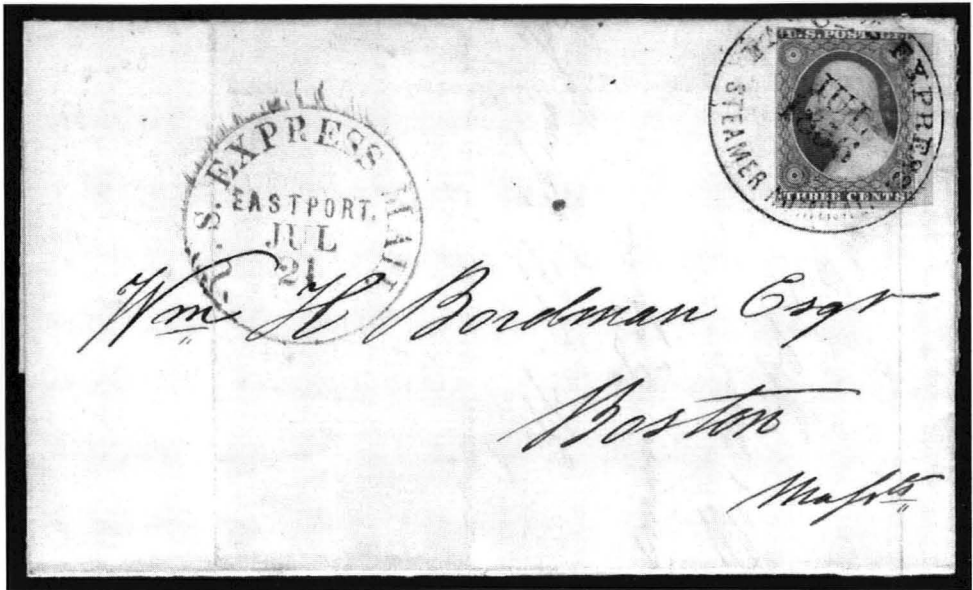 U.S. POSTAGE
EXPRESS
JUL
STEAMER
THREE CENTS
U.S. EXPRESS MAIL
EASTPORT.
JUL
21
Wm. H Bordman Esqr
Boston
Massts